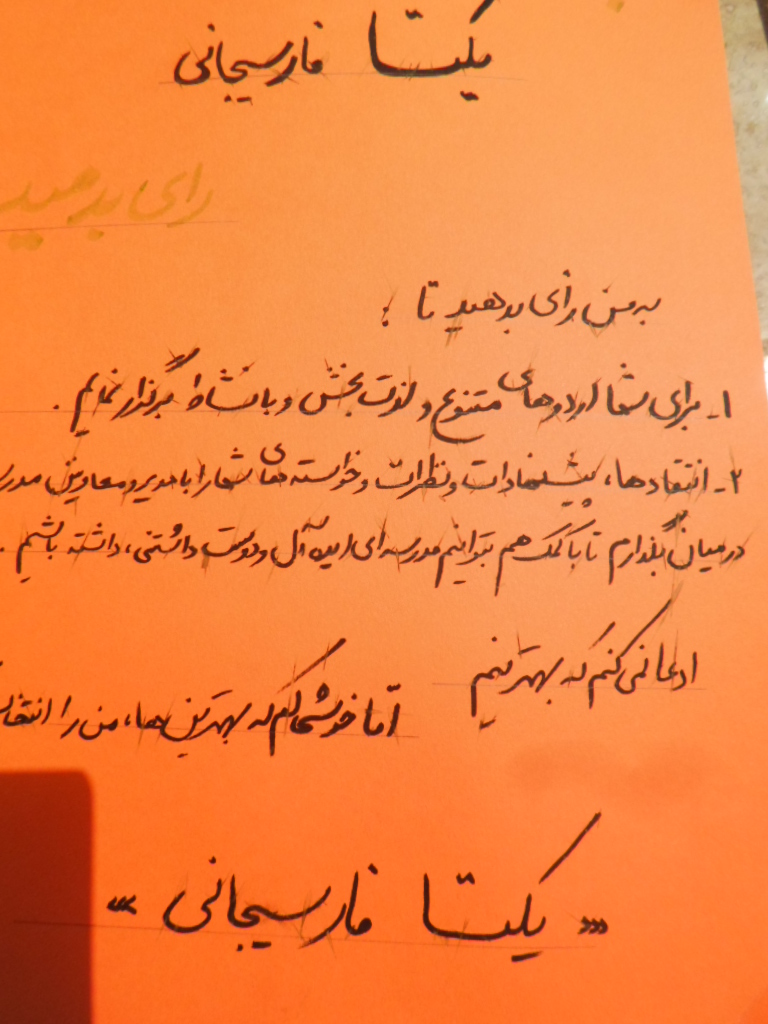 یکتا فارسیجانی
رای بدهید
به من رأی بدهید تا :
۱ـ برای شما اردوهای متنوع و لذت بخش و با نشاط برگزار نمایم .
۲ـ انتقادها، پیشنهادات و نظرات و خواسته های شما را با مدیر و معاونین
در میان بگذارم تا با کمک هم بتوانیم مدرسه ای ایده آل و دوست داشتنی، داشته باشیم .
ادعا نمی کنم که بهترینم
امّا خوشحالم که بهترین ها، من را
««« یکتا فارسیجانی »»»